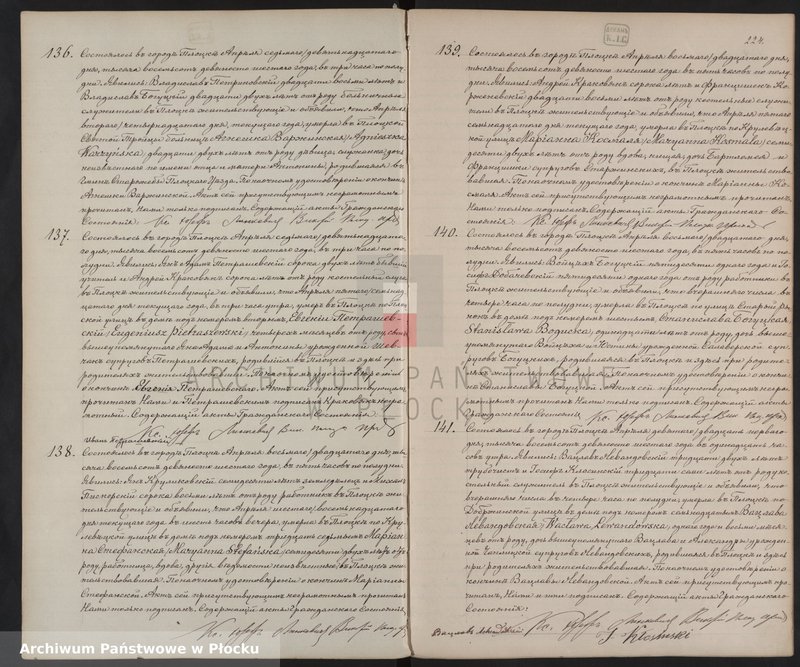 136. Состоялось въ городѣ Плоцкѣ Апрѣля седьмаго/девятнадцатаго
дня, тысяча восемьсотъ девяносто шестаго года, въ три часа по полу-
дни. Явились: Владиславъ Петриковскій двадцати восьми лѣтъ и
Владиславъ Богуцкій двадцати двухъ лѣтъ отъ роду больничные
служители въ Плоцкѣ жительствующіе и объявили, что Апрѣля
втораго/четырнадцатаго дня, текущаго года, умерла въ Плоцкой
Святой Троицы больницѣ
Warzyńska, двадцати двухъ лѣтъ отъ роду дѣвица, служанка, дочь
неизвѣстнаго по имени отца и матери Антонины, родившаяся въ
Плоцкаго Уѣзда. По наочномъ удостовѣреніи о кончинѣ
Актъ сей присутствующимъ неграмотнымъ
прочитанъ, Нами только подписанъ. Содержащій акты Гражданскаго
Состоянія
137. Состоялось въ городѣ Плоцкѣ Апрѣля седьмаго/девятнадцата-
го дня, тысяча восемьсотъ девяносто шестаго года, въ три часа по по-
лудни. Явились: Янъ Адамъ Петрашевскій сорока двухъ лѣтъ бывшій
учитель и Андрей Краковякъ сорока лѣтъ отъ роду костельный слуга
въ Плоцкѣ жительствующіе и объявили, что Апрѣля пятаго/семнад-
цатаго дня текущаго года, въ три часа утра, умеръ въ Плоцкѣ по
ской улицѣ въ домѣ подъ номеромъ вторымъ, Евгеній Петрашев-
скій (Eugeniusz Pietraszewski) четырехъ мѣсяцевъ отъ роду, сынъ
вышеупомянутаго Яна Адама и Антонины урожденной
супруговъ Петрашевскихъ, родившійся въ Плоцкѣ и здѣсь при
родителяхъ жительствовавшій. По наочномъ удостовѣреніи
о кончинѣ Евгенія Петрашевскаго Актъ сей присутствующимъ
прочитанъ Нами и Петрашевскимъ подписанъ, Краковякъ негра-
мотный. Содержащій акты Гражданскаго Состоянія
138. Состоялось въ городѣ Плоцкѣ Апрѣля восьмаго/двадцатаго дня, ты-
сяча восемьсотъ девяносто шестаго года, въ пять часовъ по полудни.
Явились: Янъ Крулиховскій семидесяти лѣтъ земледѣлецъ и Михаилъ
сорока восьми лѣтъ отъ роду работникъ въ Плоцкѣ жи-
тельствующіе и объявили, что Апрѣля шестаго/восемнадцатаго
дня текущаго года въ шесть часовъ вечера, умерла въ Плоцкѣ по Кру-
левецкой улицѣ въ домѣ подъ номеромъ тридцать седьмымъ Маріан-
на Стефанская, (Maryanna Stefańska) семидесяти двухъ лѣтъ отъ
роду, работница, вдова, другія свѣдѣнія неизвѣстны, въ Плоцкѣ жи-
тельствовавшая. По наочномъ удостовѣреніи о кончинѣ Маріанны
Стефанской. Актъ сей присутствующимъ неграмотнымъ прочитанъ
Нами только подписанъ. Содержащій акты Гражданскаго Состоянія
224.
139. Состоялось въ городѣ Плоцкѣ Апрѣля восьмаго/двадцатаго дня,
тысяча восемьсотъ девяносто шестаго года въ пять часовъ по полу-
дни. Явились: Андрей Краковякъ сорока лѣтъ и Францишекъ Ко-
двадцати восьми лѣтъ отъ роду костельные служи-
тели въ Плоцкѣ жительствующіе и объявили, что Апрѣля пятаго/
семнадцатаго дня текущаго года, умерла въ Плоцкѣ по Крулевец-
кой улицѣ Маріанна Космаля (Maryanna Kosmala) семи-
десяти двухъ лѣтъ отъ роду, вдова, нищая, дочь Бартломея и
Францишки супруговъ въ Плоцкѣ жительство-
вавшая. По наочномъ удостовѣреніи о кончинѣ Маріанны Ко-
смаля. Актъ сей присутствующимъ неграмотнымъ прочитанъ,
Нами только подписанъ. Содержащій акты Гражданскаго Со-
стоянія
140. Состоялось въ городѣ Плоцкѣ Апрѣля восьмаго/двадцатаго дня,
тысяча восемьсотъ девяносто шестаго года, въ пять часовъ по по-
лудни. Явились: Войцѣхъ Богуцкій пятидесяти одного года и Іо-
сифъ пятидесяти одного года отъ роду работники въ
Плоцкѣ жительствующіе и объявили, что вчерашняго числа въ
четыре часа по полудни, умерла въ Плоцкѣ по улицѣ Старый Ры-
нокъ въ домѣ подъ номеромъ шестымъ, Станислава Богуцкая
Stanisława Bogucka, одиннадцати лѣтъ отъ роду, дочь выше-
упомянутаго Войцѣха и урожденной суп-
руговъ Богуцкихъ, родившаяся въ Плоцкѣ и здѣсь при родите-
ляхъ жительствовавшая. По наочномъ удостовѣреніи о кончи-
нѣ Станиславы Богуцкой Актъ сей присутствующимъ негра-
мотнымъ прочитанъ Нами только подписанъ. Содержащій акты
Гражданскаго Состоянія
141. Состоялось въ городѣ Плоцкѣ Апрѣля девятаго/двадцать перваго
дня, тысяча восемьсотъ девяносто шестаго года въ одиннадцать ча-
совъ утра. Явились: Вацлавъ Левандовскій тридцати двухъ лѣтъ
и Іосифъ Клосинскій тридцати семи лѣтъ отъ роду ко-
стельный служитель въ Плоцкѣ жительствующіе и объявили, что
вчерашняго числа въ четыре часа по полудни, умерла въ Плоцкѣ по
Добржинской улицѣ въ домѣ подъ номеромъ семнадцатымъ Вацлава
Левандовская (Wacława Lewandowska), одного года и восьми мѣся-
цевъ отъ роду, дочь вышеупомянутаго Вацлава и Александры урожден-
ной супруговъ Левандовскихъ, родившаяся въ Плоцкѣ и здѣсь
при родителяхъ жительствовавшая. По наочномъ удостовѣреніи о
кончинѣ Вацлавы Левандовской Актъ сей присутствующимъ про-
читанъ, Нами и ими подписанъ. Содержащій акты Гражданскаго
Состоянія:
ARCHIWUM PAŃSTWOWE
W PŁOCKU
Archiwum Państwowe w Płocku